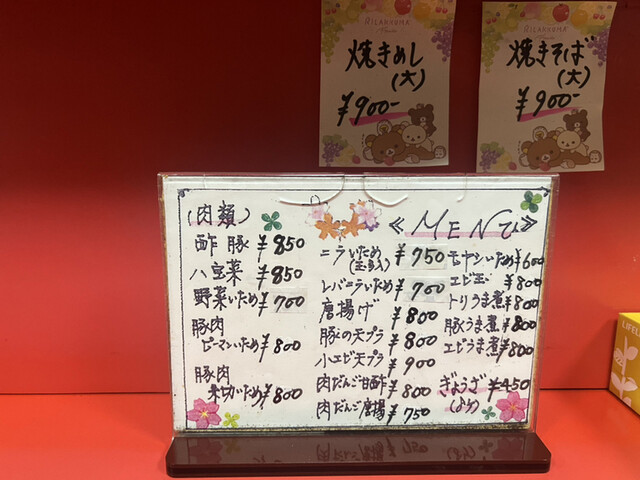 RILAKKUMA
焼きめし
(大)
¥900-
RILAKKUMA
焼きそば
(大)
¥900-
(肉類)
酢豚 ¥850
八宝菜 ¥850
野菜いため ¥700
豚肉
ピーマンいため ¥800
豚肉
いため ¥800
≪MENU≫
ニラいため ¥750
(玉子入)
レバニラいため ¥700
唐揚げ ¥800
豚の天プラ ¥800
小エビ天プラ ¥900
肉だんご甘酢 ¥800
肉だんご唐揚 ¥750
モヤシいため ¥600
エビ玉 ¥800
トリうま煮 ¥800
豚うま煮 ¥800
エビうま煮 ¥800
ぎょうざ ¥450
LIFE